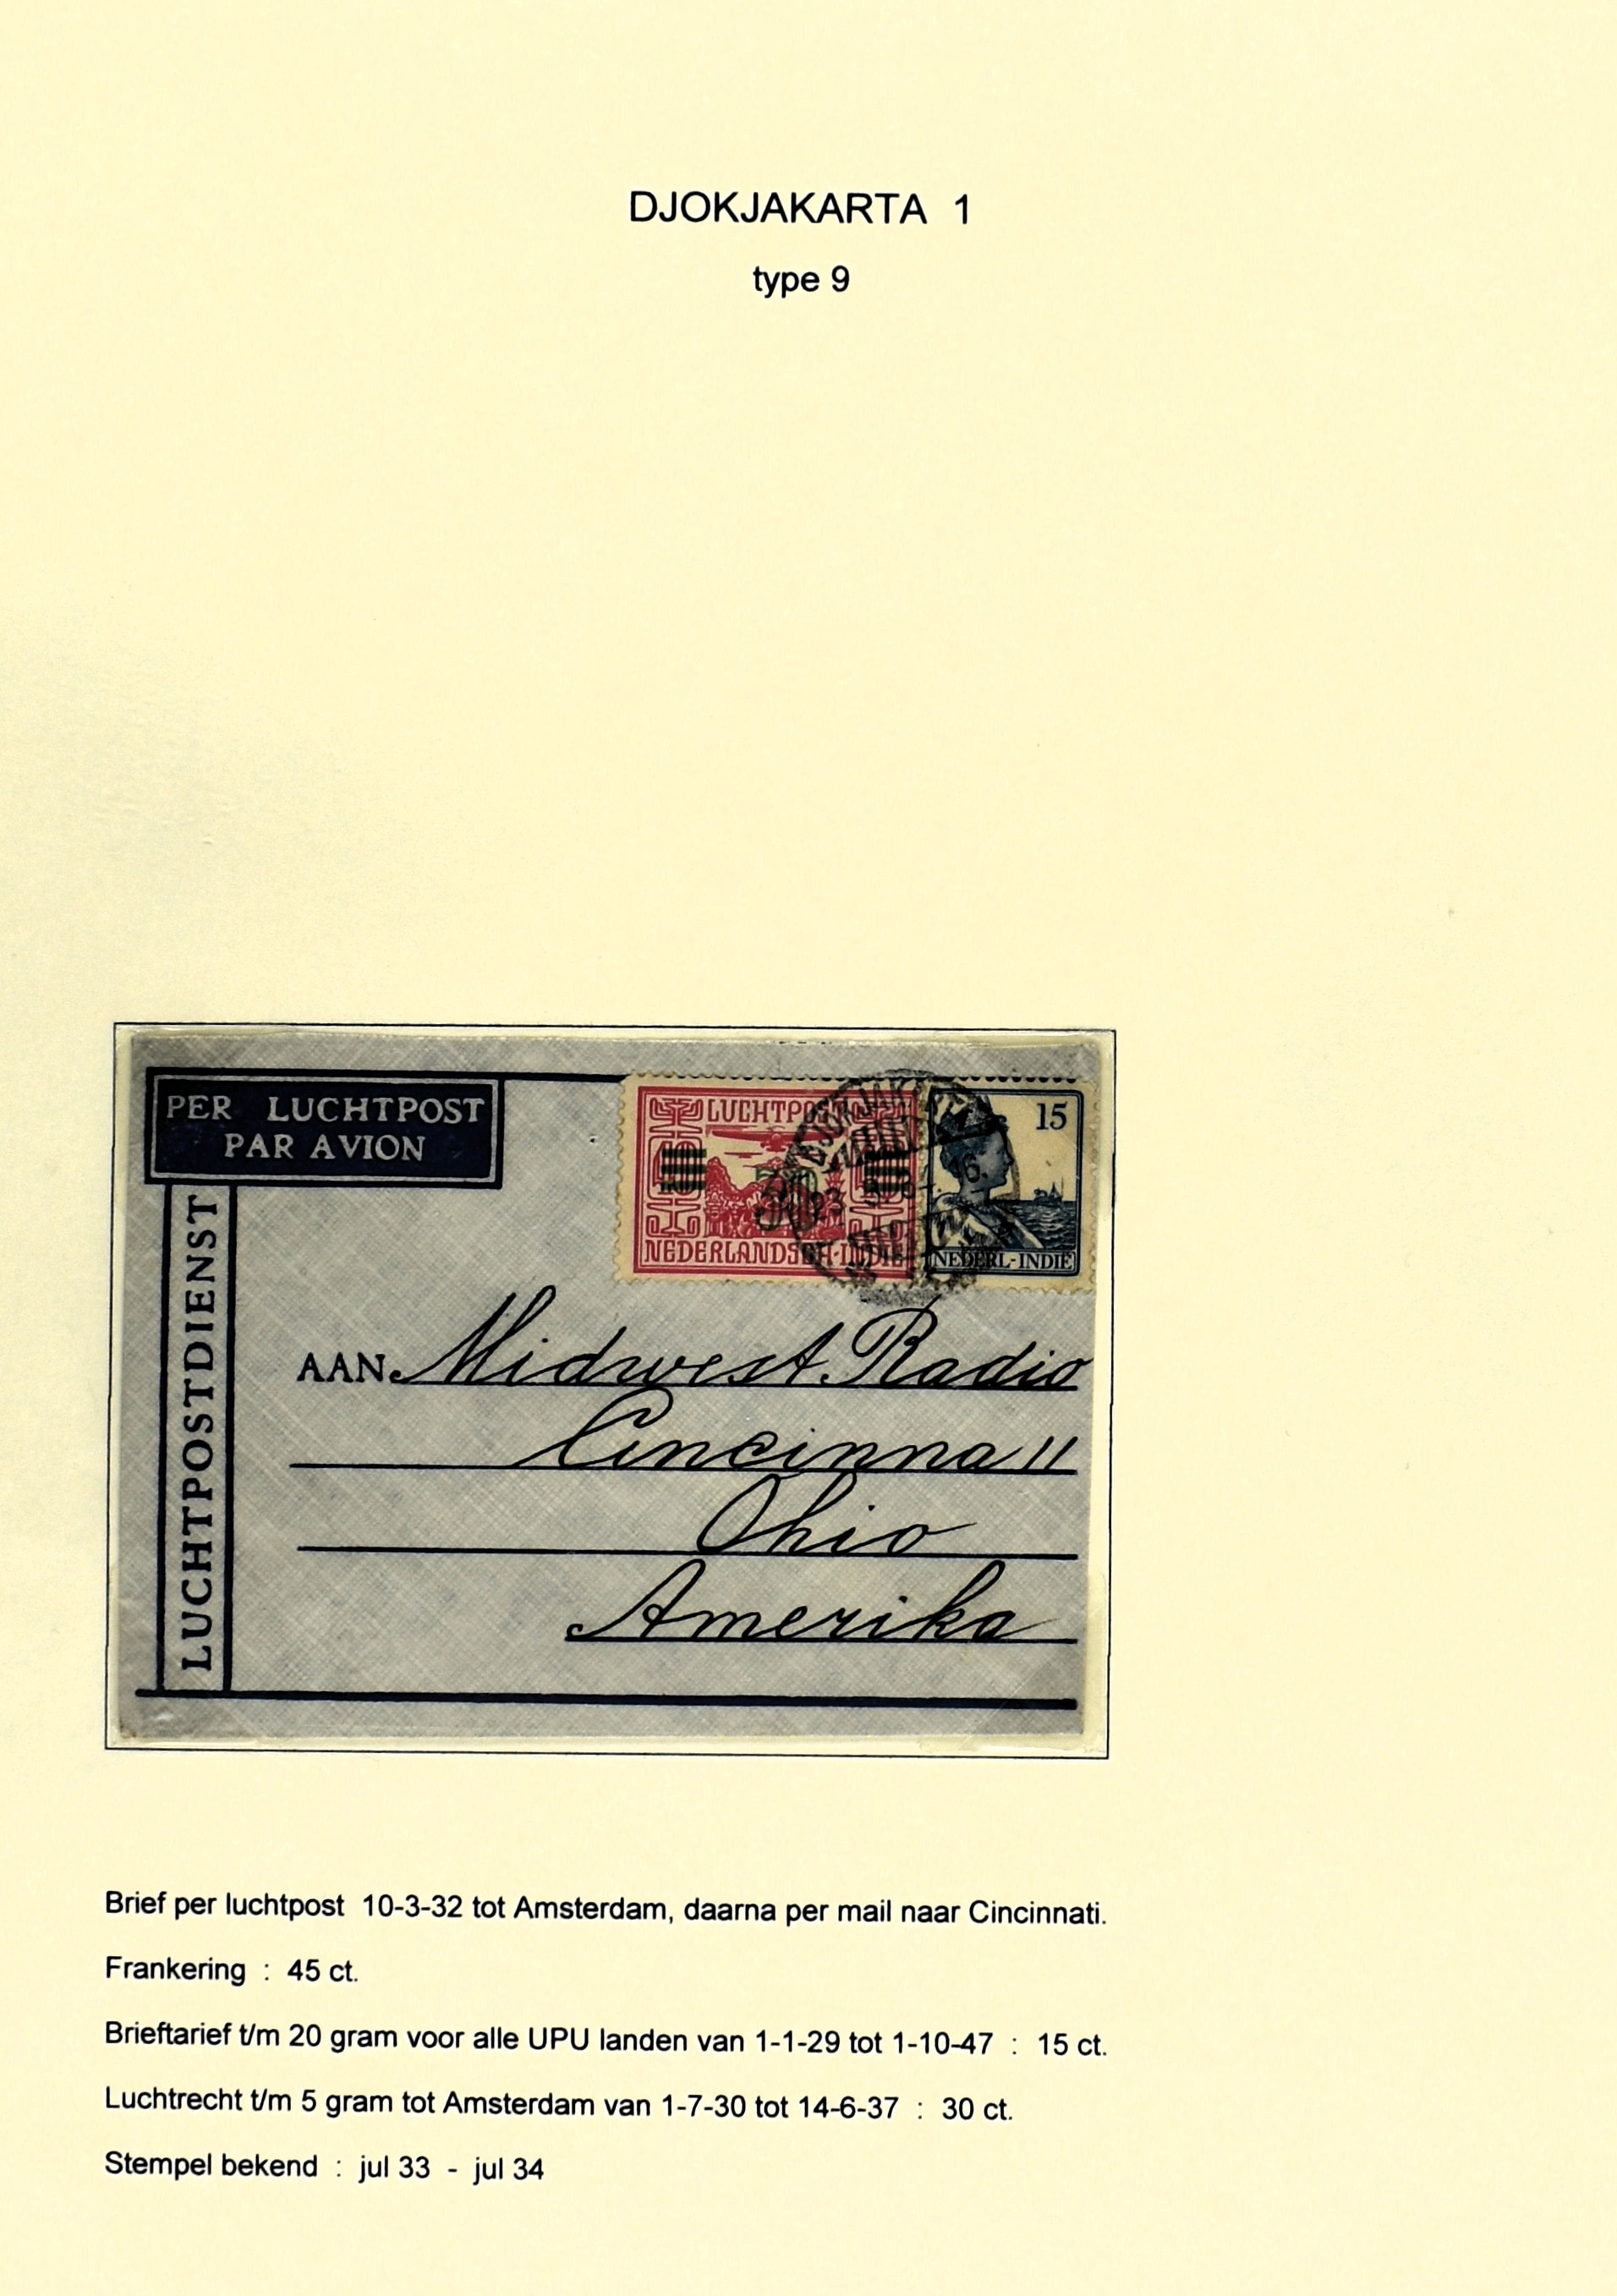 DJOKJAKARTA 1
type 9
PER LUCHTPOST
PAR AVION
LUCHTPOSTDIENST
LUCHTPOST
30
NEDERLANDSCH-INDIË
15
NEDERL-INDIË
DJOKJAKARTA
AAN Midwest Radio
Cincinnati
Ohio
Amerika
Brief per luchtpost 10-3-32 tot Amsterdam, daarna per mail naar Cincinnati.
Frankering : 45 ct.
Brieftarief t/m 20 gram voor alle UPU landen van 1-1-29 tot 1-10-47 : 15 ct.
Luchtrecht t/m 5 gram tot Amsterdam van 1-7-30 tot 14-6-37 : 30 ct.
Stempel bekend : jul 33 - jul 34